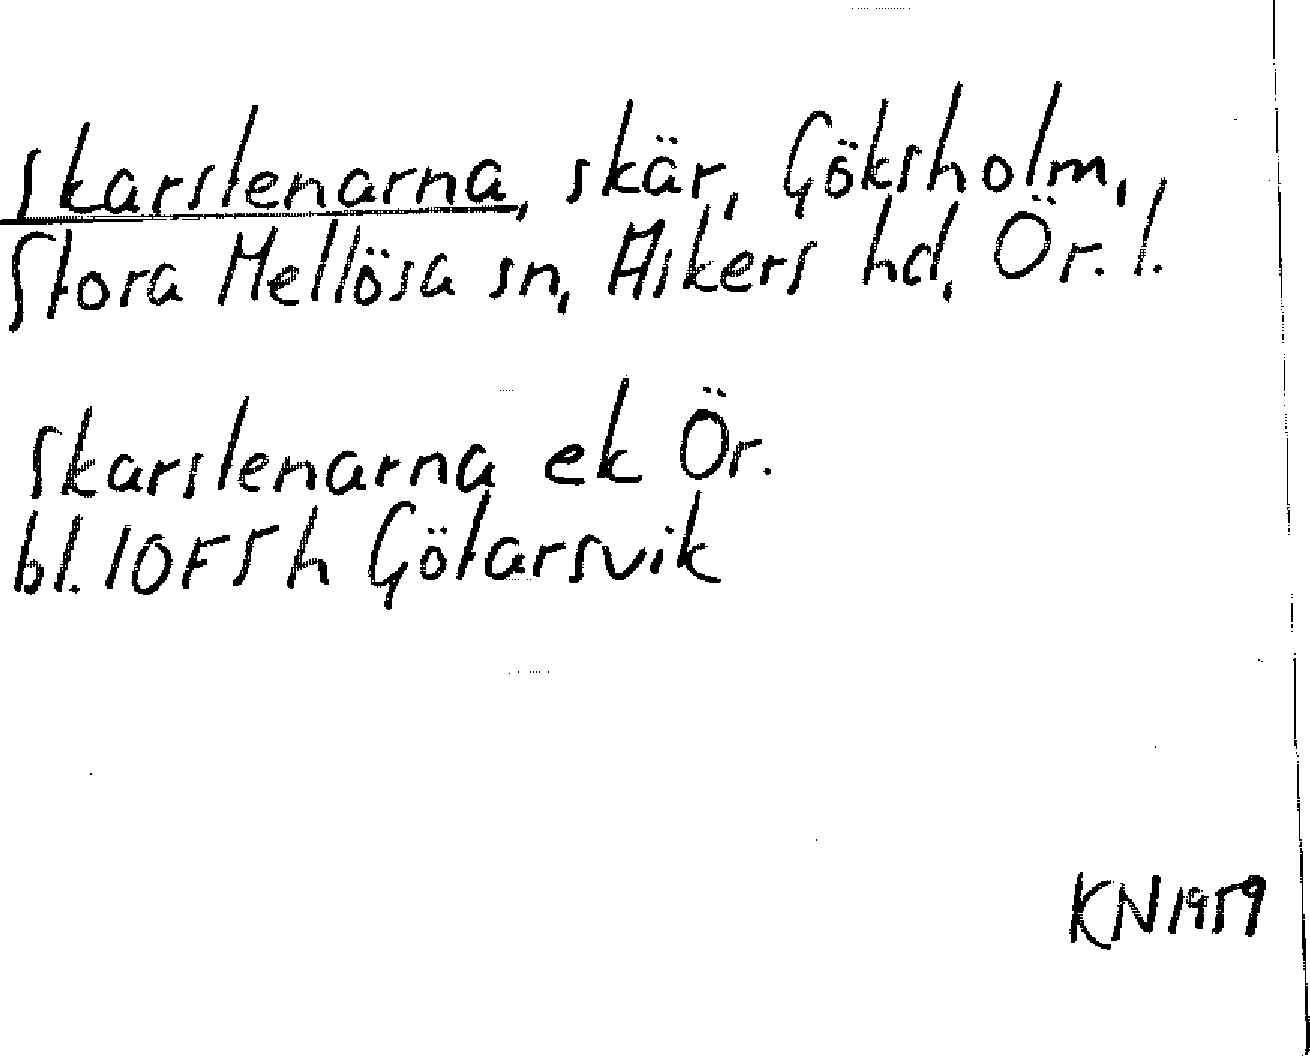 Skarstenarna, skär, Göksholm,
Stora Mellösa sn, Askers hd, Ör. l.
Skarstenarna ek Ör.
bl. 10F5h Götarsvik
KN1959